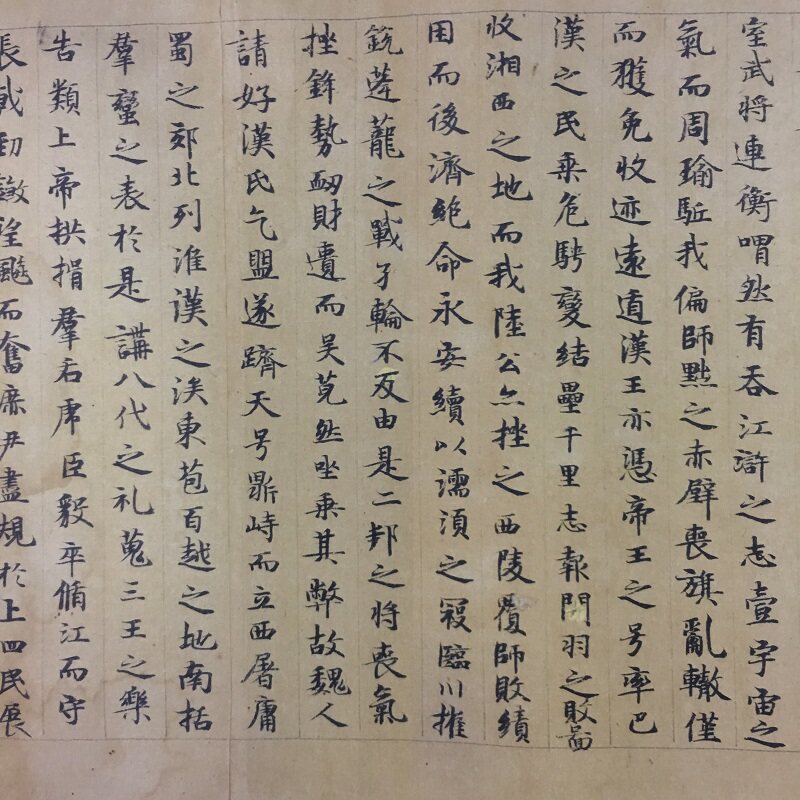 室武將連衡喟然有吞江滸之志壹宇宙之
氣而周瑜駈我偏師黜之赤壁喪旗亂轍僅
而獲免收迹遠遁漢王亦憑帝王之号率巴
漢之民乗危騁變結壘千里志報關羽之敗啚
收湘西之地而我陸公亦挫之西陵覆師敗績
困而後濟絶命永安續以濡湏之寇臨川摧
鋭蓬蘢之戰孑輪不反由是二邦之將喪氣
挫鋒勢衂財遺而吴莧然坐乗其弊故魏人
請好漢氏乞盟遂躋天号鼎峙而立西屠庸
蜀之郊北列淮漢之涘東苞百越之地南括
羣蠻之表於是講八代之礼蒐三王之樂
告類上帝拱揖羣后虎臣毅卒脩江而守
長戟勁鎩望飈而奮庶尹盡規於上四民展